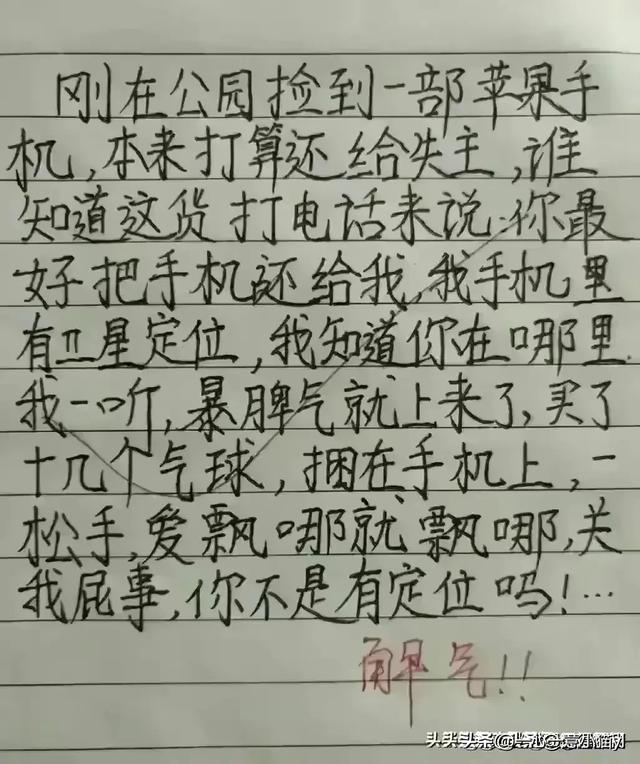 刚在公园捡到一部苹果手
机,本来打算还给失主,谁
知道这货打电话来说:你最
好把手机还给我,我手机里
有卫星定位,我知道你在哪里.
我一听,暴脾气就上来了,买了
十几个气球,捆在手机上,一
松手,爱飘哪就飘哪,关
我屁事,你不是有定位吗!…
解气!!
头条